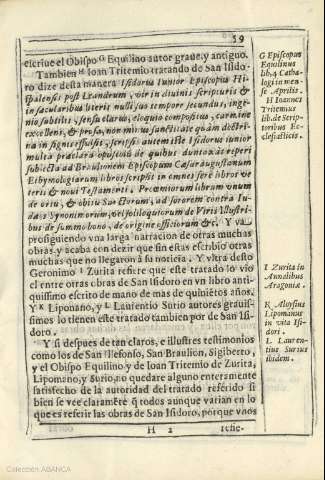 59
escriue el Obispo G Equilino autor graue, y antiguo.
Tambien H Ioan Tritemio tratando de San Isido-
ro dize desta manera Isidorus Iunior Episcopus Hi-
spalensis post Leandrum, vir in diuinis scripturis &
in sæcularibus literis nulli suo tempore secundus, inge-
nio subtilis, sensu clarus, eloquio compositus, carmine
excellens, & prosa, non minus sanctitate quam doctri-
na insignis effulsit, scripsit autem iste Isidorus iunior
multa præclara opuscula de quibus
subiecta ad Braulionem Episcopum Cæsaraugustanum
Ethymologiarum libros scripsit in omnes fere libros ve
teris & noui Testamenti. Proœmiorum librum vnum
de ortu, & obitu Sanctorum, ad sororem contra Iu-
dæos Synonimorum, vel soliloquiorum de Viris Illustri-
bus de summo bono, de origine officiorum &c. Y va
prosiguiendo vna larga narracion de otras muchas
obras y acaba con dezir que sin estas escribio otras
muchas que no llegaron à su noticia. Y vltra desto
Geronimo I Zurita refiere que este tratado lo vio
el entre otras obras de San Isidoro en vn libro anti-
quissimo escrito de mano de mas de quiniẽtos años.
Y K Lipomano, y L Laurentio Surio autores grauis-
simos lo tienen este tratado tambien por de San Isi-
doro.
Y si despues de tan claros, e illustres testimonios
como los de San Illefonso, San Braulion, Sigiberto,
y el Obispo Equilino y de Ioan Tritemio de Zurita,
Lipomano, y Surio, no quedare alguno enteramente
satisfecho de la autoridad del tratado referido si
bien se vee claramẽte q̃ todos aunque varian en lo
que es referir las obras de San Isidoro, porque vnos
H 2
refie-
G Episcopus
Equilinus
lib. 4 Catha-
logi in men-
se Aprilis.
H Ioannes
Tritemius
lib. de Scrip-
toribus Ec-
clesiasticis.
I Zurita in
Annalibus
Aragoniæ.
K Aloysius
Lipomanus
in vita Isi-
dori.
L Lauren-
tius Surius
ibidem.
Colección ABANCA